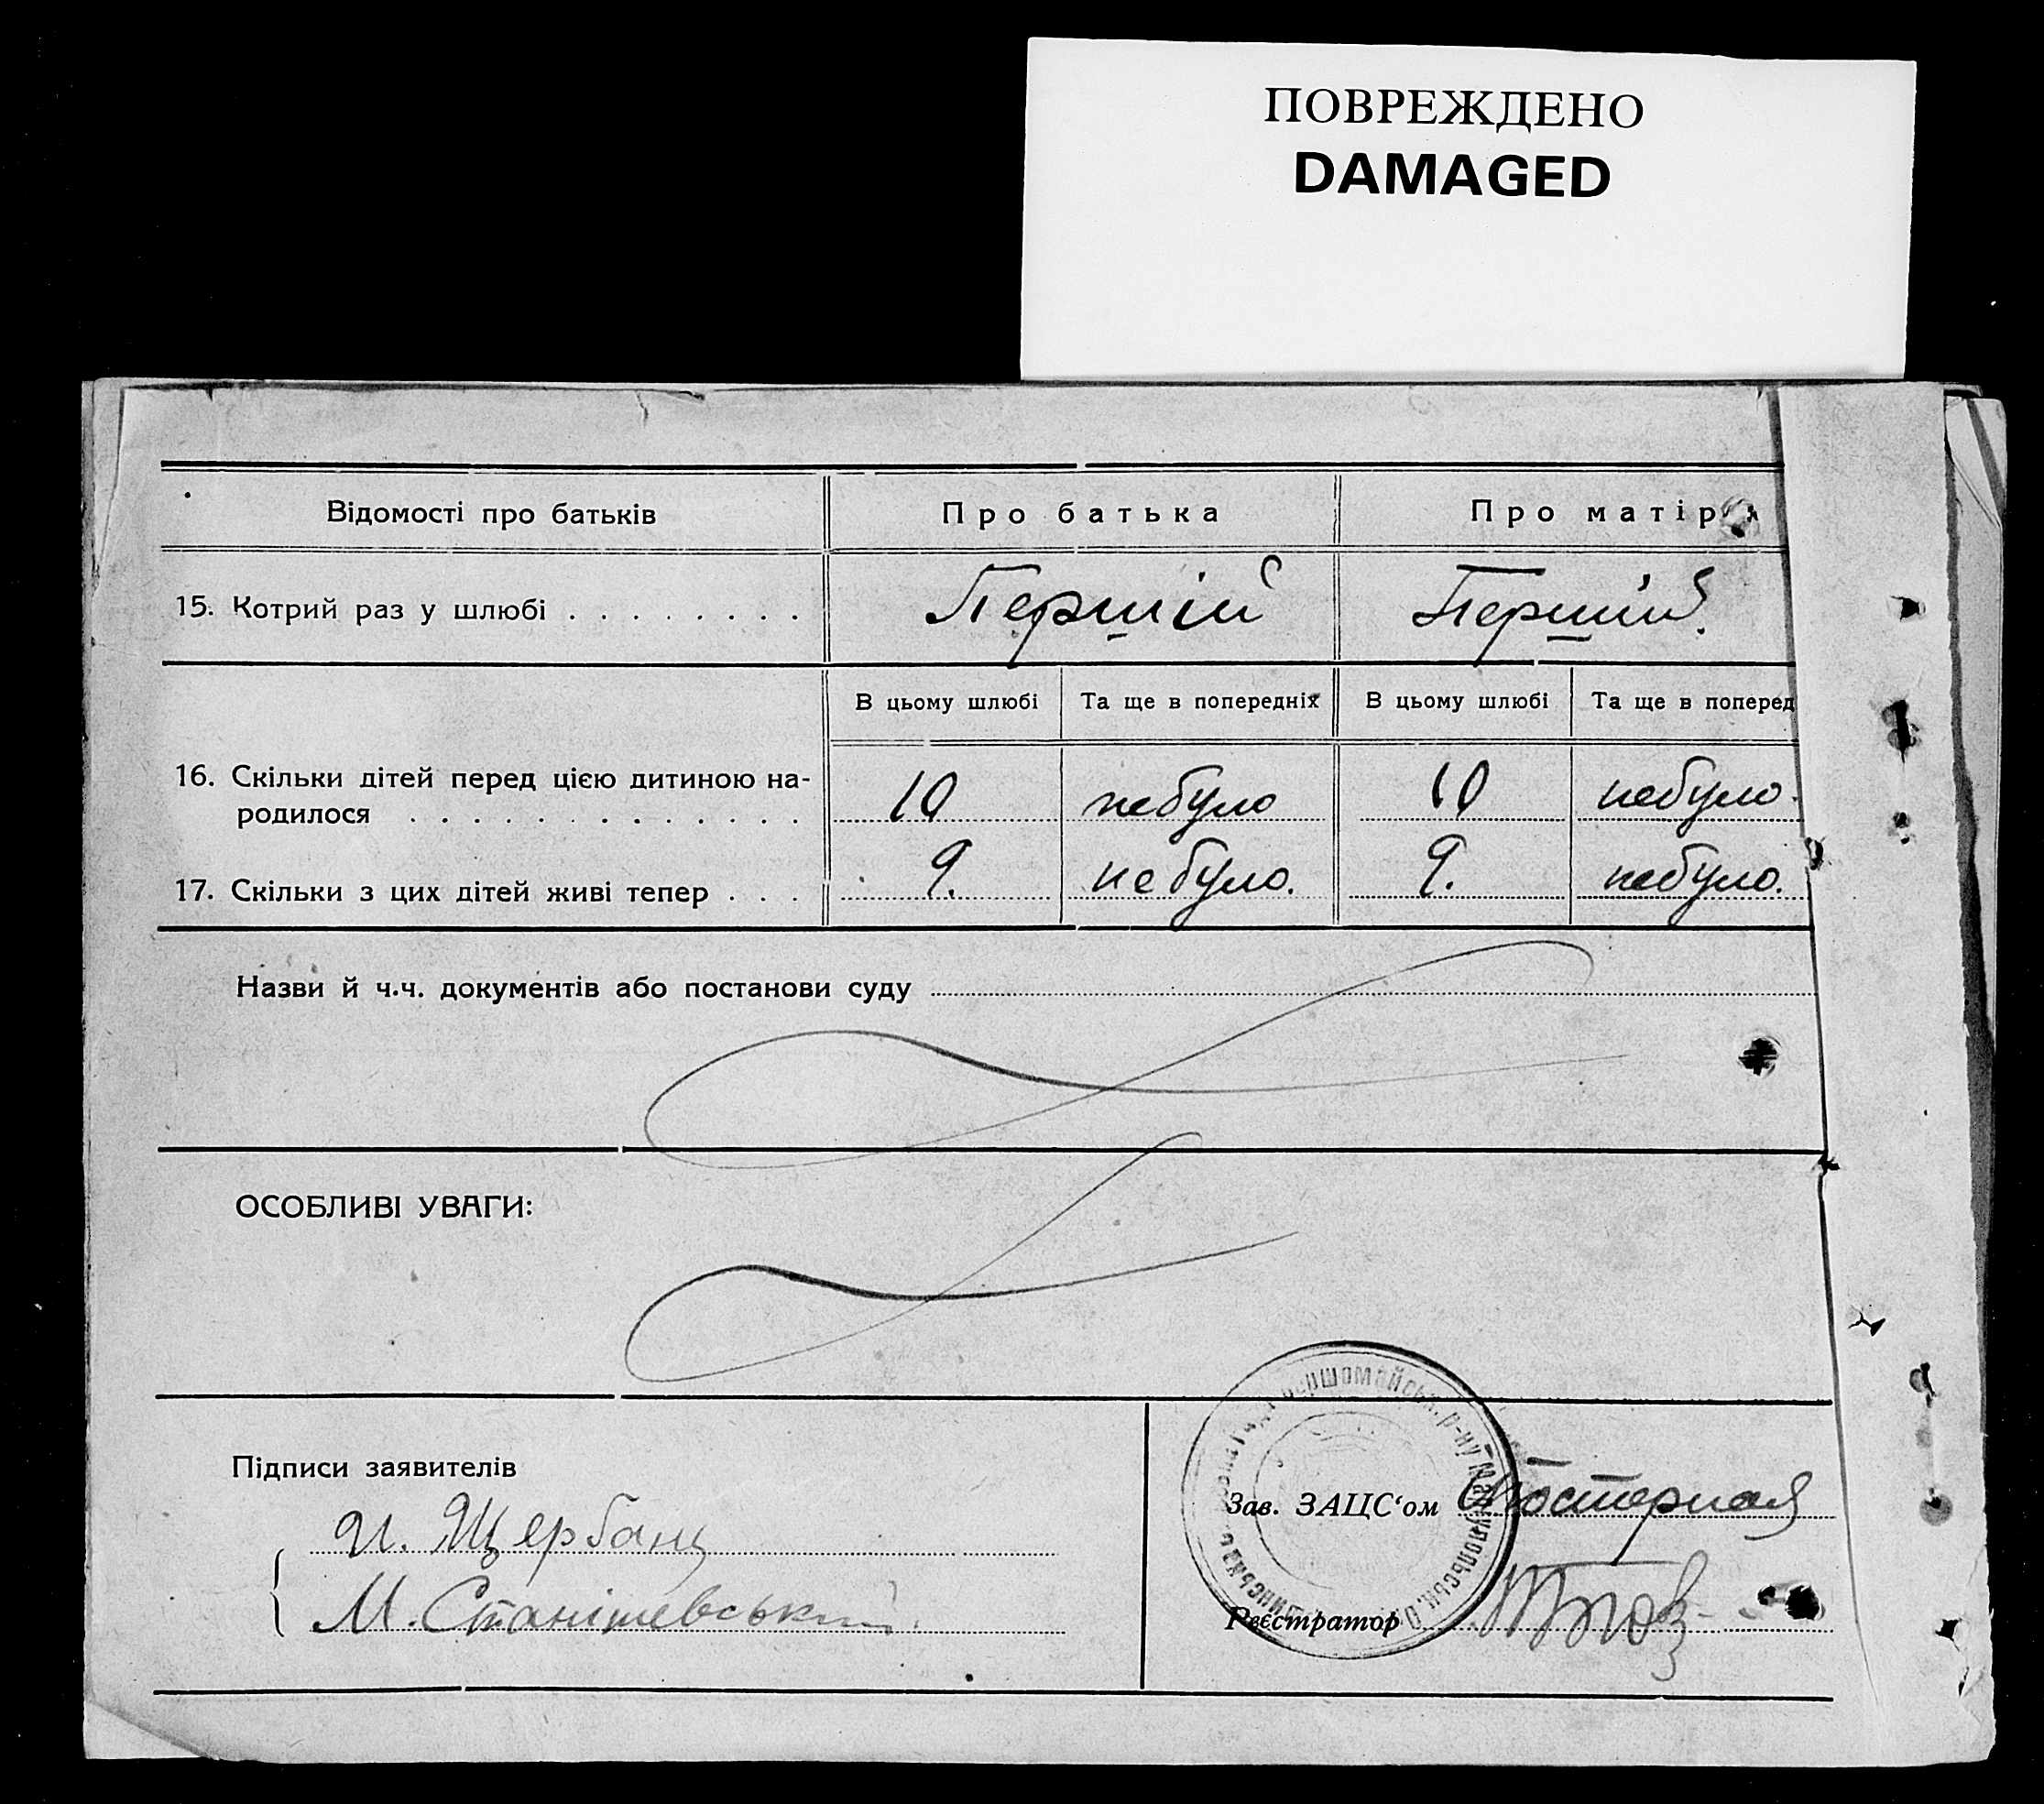 ПОВРЕЖДЕНО
DAMAGED
Відомості про батьків
Про батька
Про матір
15. Котрий раз у шлюбі
Першій
Першій.
В цьому шлюбі
Та ще в попередніх
В цьому шлюбі
Та ще в поперед
16. Скільки дітей перед цією дитиною на-
родилося
10
небуло
10
небуло.
17. Скільки з цих дітей живі тепер
9.
небуло.
9.
небуло.
Назви й ч.ч. документів або постанови суду
ОСОБЛИВІ УВАГИ:
Підписи заявителів
И. Щербанц
М. Станішевський.
Зав. ЗАЦС‘ом
Реєстратор